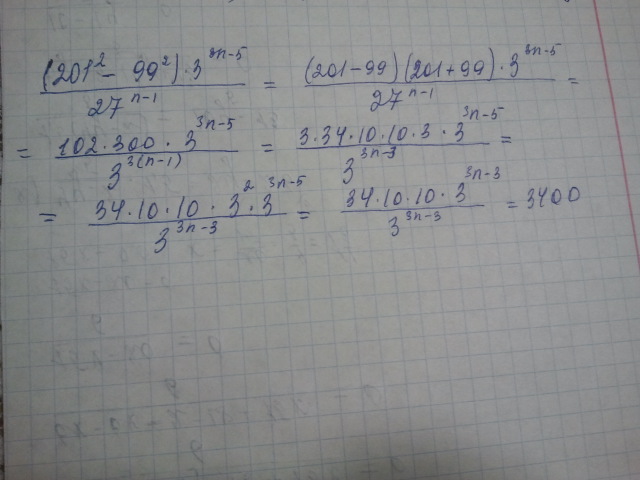 (201² − 99²) · 3³ⁿ⁻⁵ / 27ⁿ⁻¹ = (201−99)(201+99) · 3³ⁿ⁻⁵ / 27ⁿ⁻¹ =
= 102 · 300 · 3³ⁿ⁻⁵ / 3³⁽ⁿ⁻¹⁾ = 3 · 34 · 10 · 10 · 3 · 3³ⁿ⁻⁵ / 3³ⁿ⁻³ =
= 34 · 10 · 10 · 3² · 3³ⁿ⁻⁵ / 3³ⁿ⁻³ = 34 · 10 · 10 · 3³ⁿ⁻³ / 3³ⁿ⁻³ = 3400